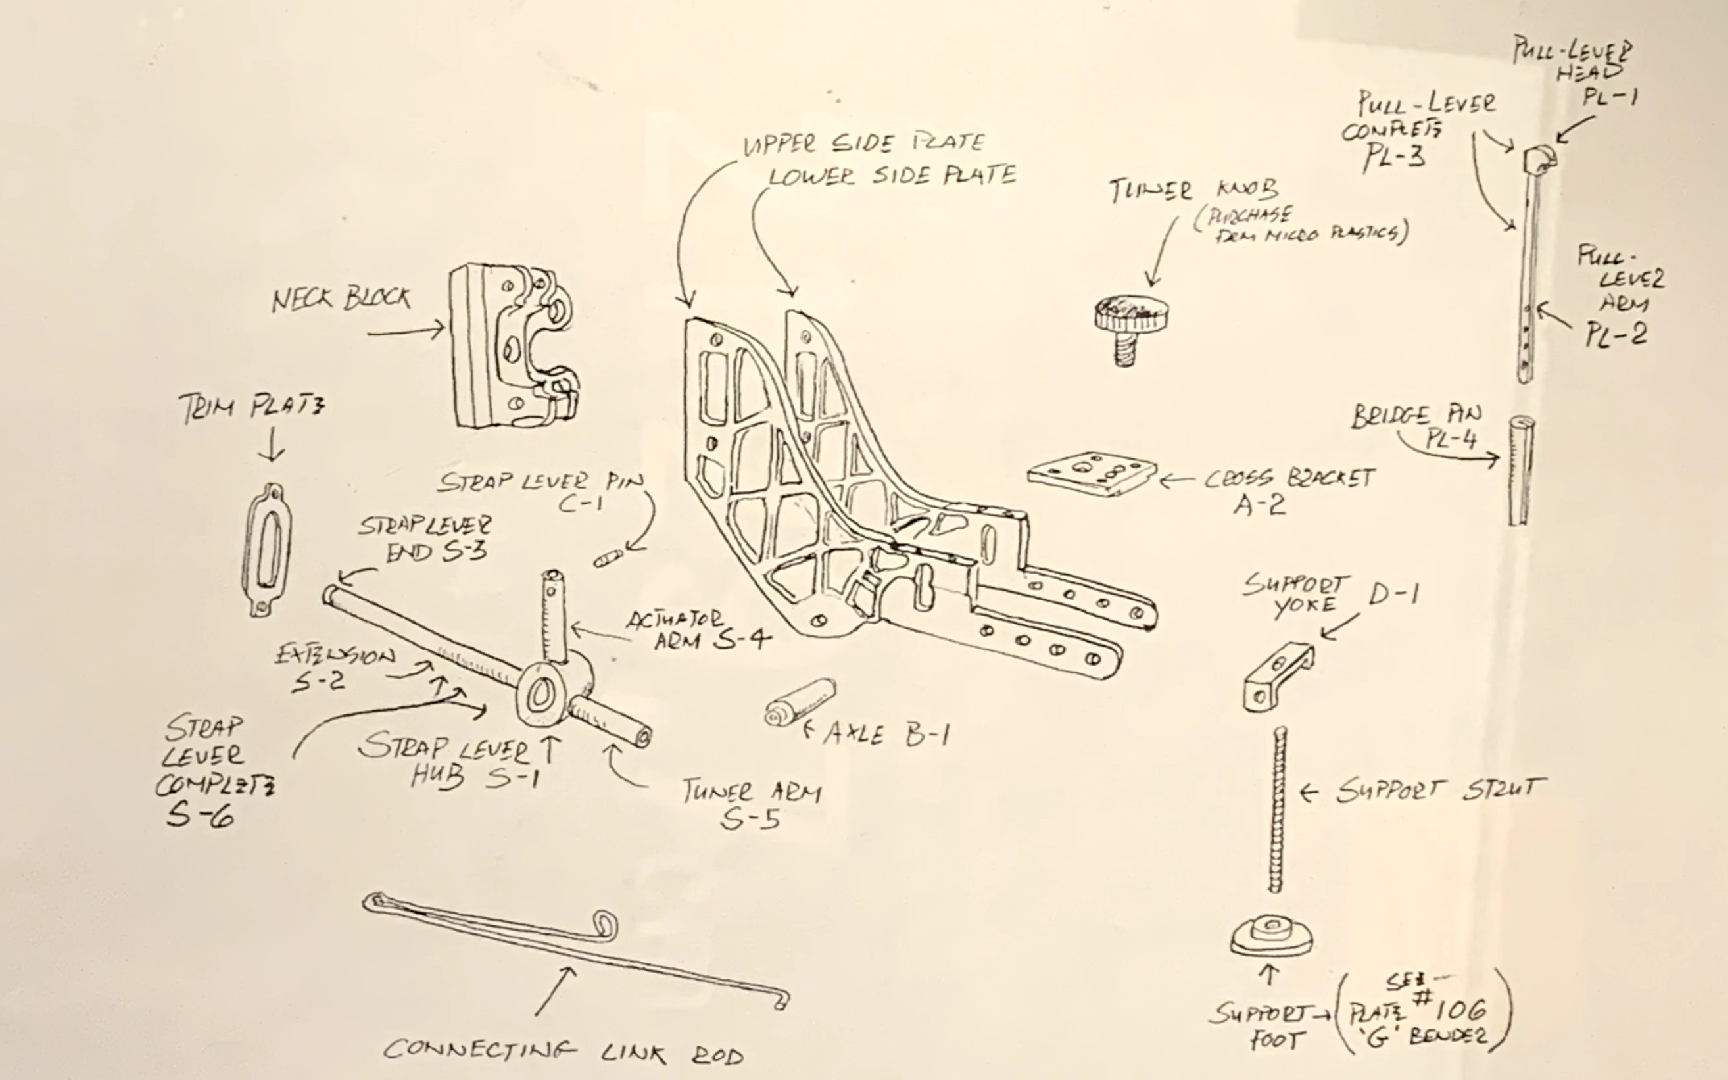 PULL-LEVER
HEAD
PL-1
PULL-LEVER
COMPLETE
PL-3
UPPER SIDE PLATE
LOWER SIDE PLATE
TUNER KNOB
(PURCHASE
FROM MICRO PLASTICS)
PULL-
LEVER
ARM
PL-2
NECK BLOCK
TRIM PLATE
BRIDGE PIN
PL-4
STRAP LEVER PIN
C-1
CROSS BRACKET
A-2
STRAP LEVER
END S-3
SUPPORT
YOKE
D-1
ACTUATOR
ARM S-4
EXTENSION
S-2
STRAP
LEVER
COMPLETE
S-6
STRAP LEVER
HUB S-1
AXLE B-1
TUNER ARM
S-5
SUPPORT STRUT
CONNECTING LINK ROD
SUPPORT
FOOT
(SEE
PLATE #106
'G' BENDER)